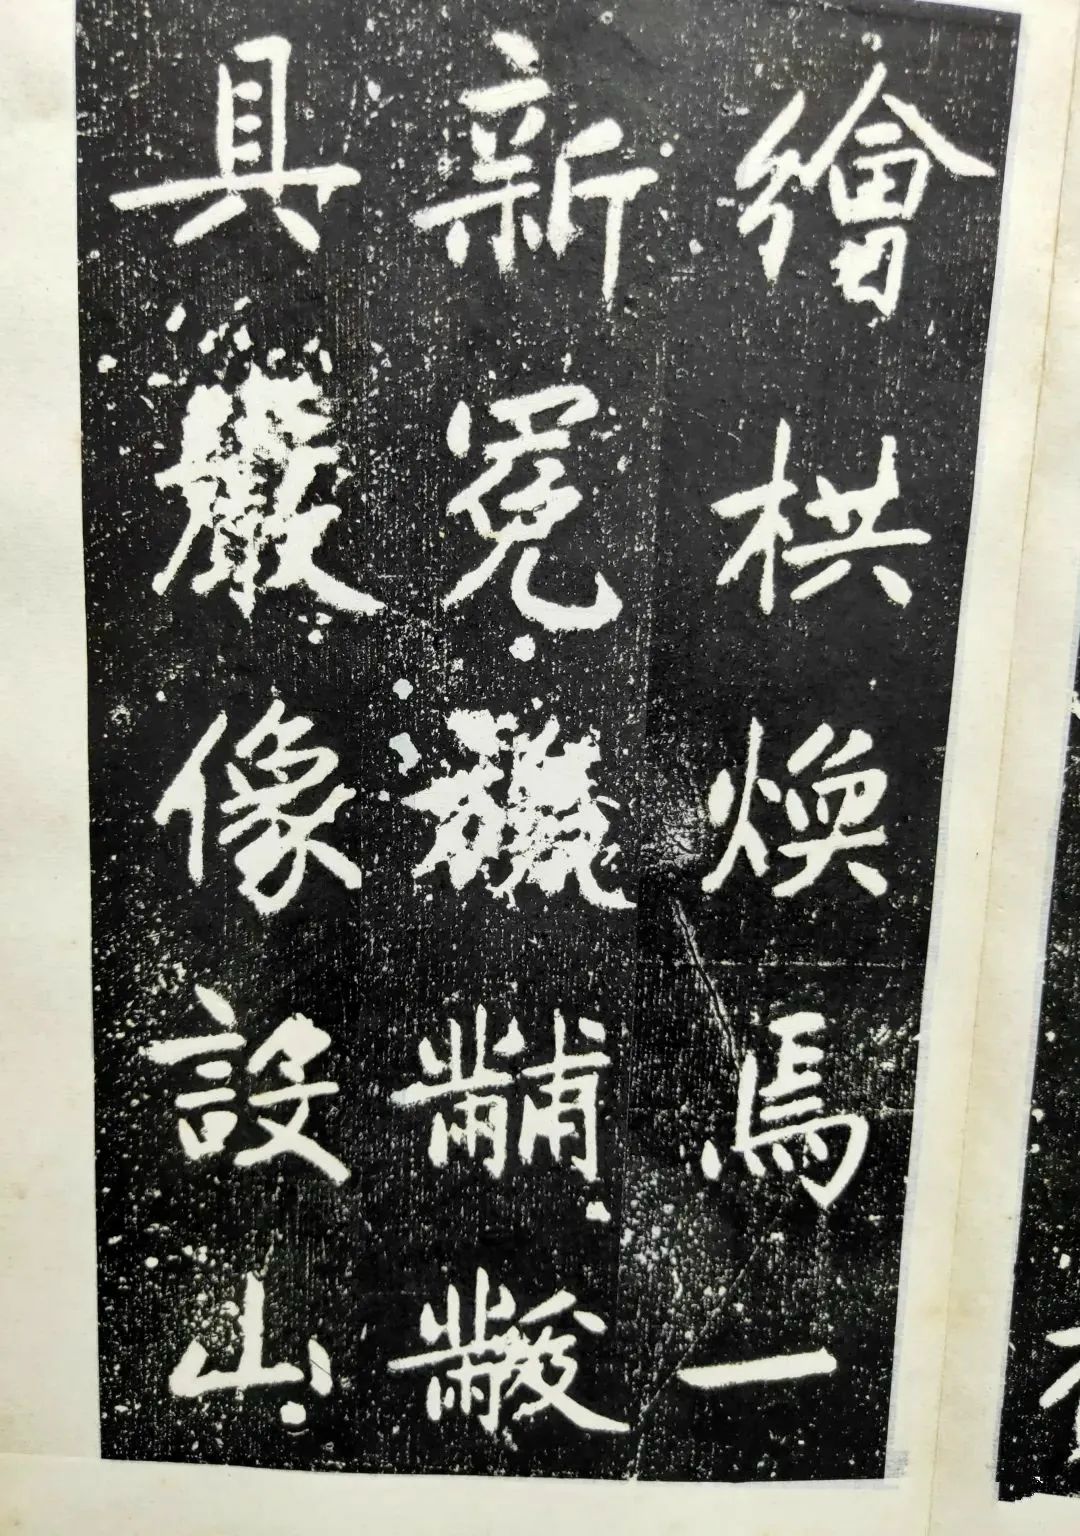 繪栱煥焉一
新冕旒黼黻
具嚴像設山